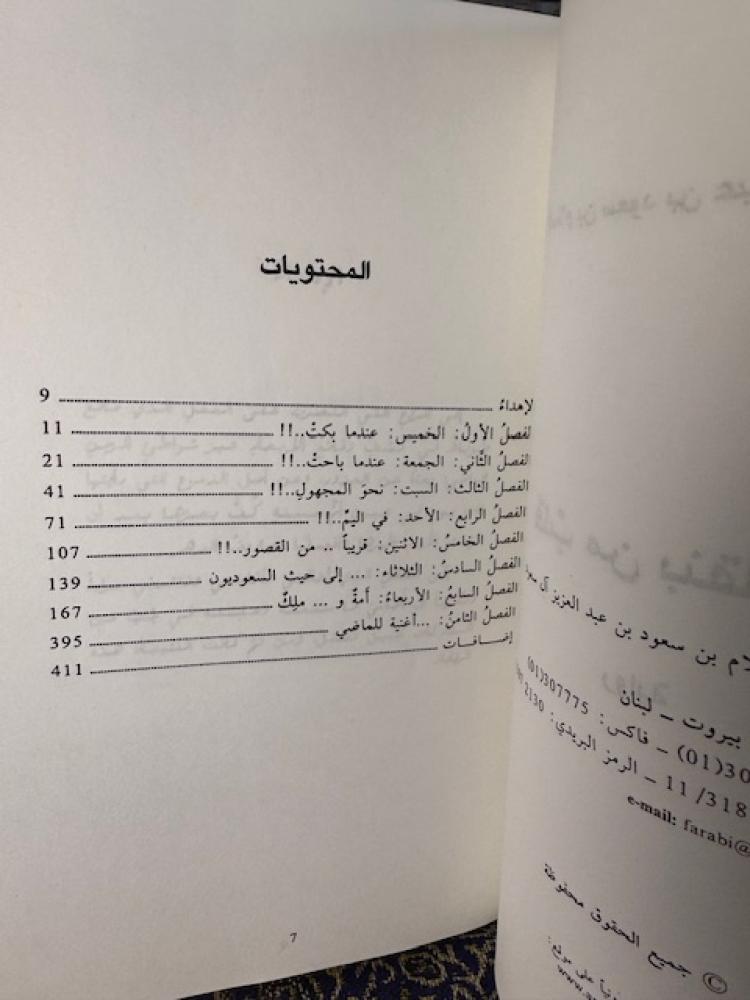 المحتويات
لإهداءُ ........ 9
لفصلُ الأولُ: الخميس: عندما بكتْ..!! ........ 11
الفصلُ الثّاني: الجمعة: عندما باحتْ..!! ........ 21
الفصلُ الثالث: السبت: نحوَ المجهولِ..!! ........ 41
الفصلُ الرابع: الأحد: في اليمّ..!! ........ 71
الفصلُ الخامسُ: الاثنين: قريباً .. من القصور..!! ........ 107
الفصلُ السادسُ: الثلاثاء: ... إلى حيث السعوديون ........ 139
الفصلُ السابعُ: الأربعاء: أَمةٌ و ... ملِكٌ ........ 167
الفصلُ الثامنُ: ...أغنية للماضي ........ 395
إضافات ........ 411
7
بن سعود بن عبد العزيز آل
بيروت – لبنان
(01)30 – فاكس: (01)307775
11/318 – الرمز البريدي: 2130
e-mail: farabi@
© جميع الحقوق محفوظة
على موقع:
www.